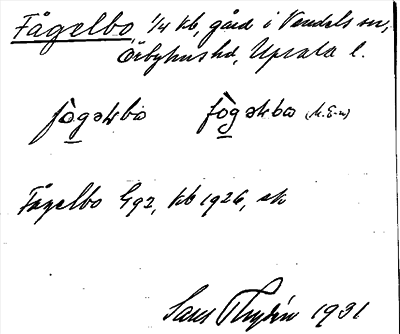 Fågelbo, 1/4 kb, gård i Vendels sn,
Örbyhus hd, Upsala l.
fògəɫbo fògəɫbo (M.E-n)
Fågelbo Gg2, kb 1926, ek
1931